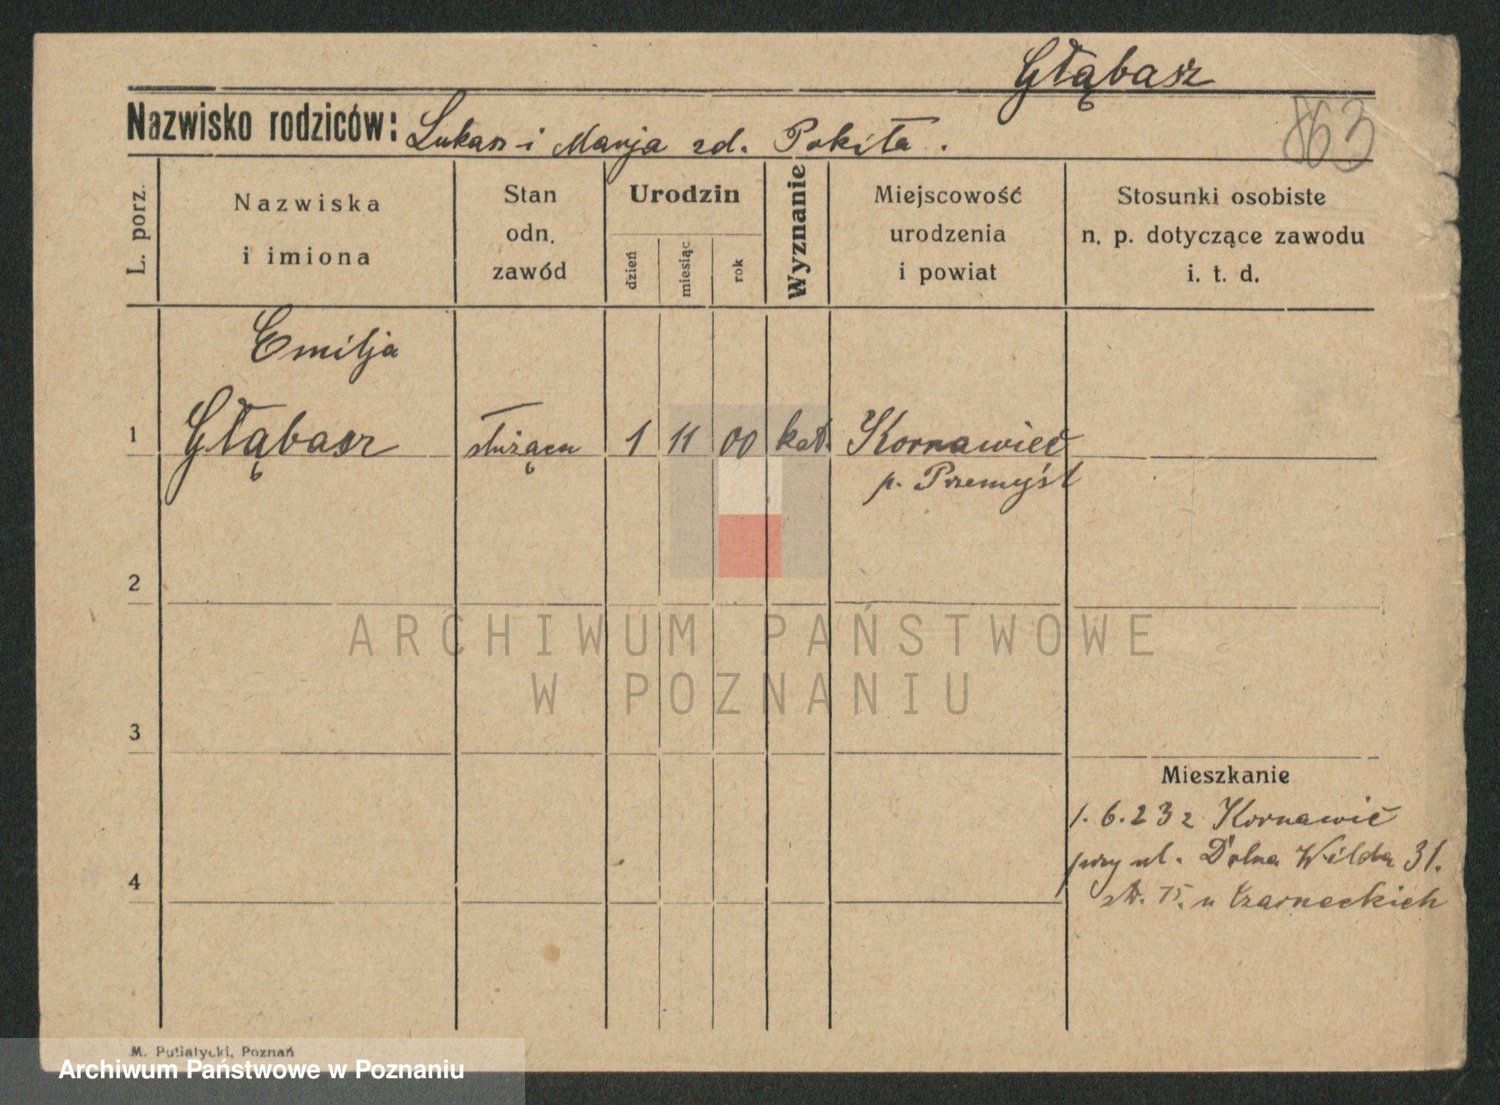 Głąbasz
863
Nazwisko rodziców: Łukasz i Marja zd. Pokiła.
L. porz.
Nazwiska
i imiona
Stan
odn.
zawód
Urodzin
dzień
miesiąc
rok
Wyznanie
Miejscowość
urodzenia
i powiat
Stosunki osobiste
n. p. dotyczące zawodu
i. t. d.
Emilja
1 Głąbasz służąca 1 11 00 kat. Kornawieć
p. Przemyśl
2
3
4
ARCHIWUM PAŃSTWOWE
W POZNANIU
Mieszkanie
1.6.23 z Kornawić
przy ul. Dolna Wilda 31.
u Czarneckich
M. Putiatycki, Poznań
Archiwum Państwowe w Poznaniu